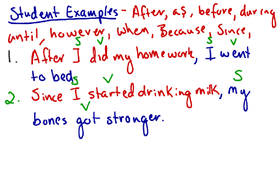 Student Examples - After, as, before, during
until, however, when, Because, Since,
S V S V
1. After I did my homework, I went
to bed.
S V S
2. Since I started drinking milk, my
V
bones got stronger.